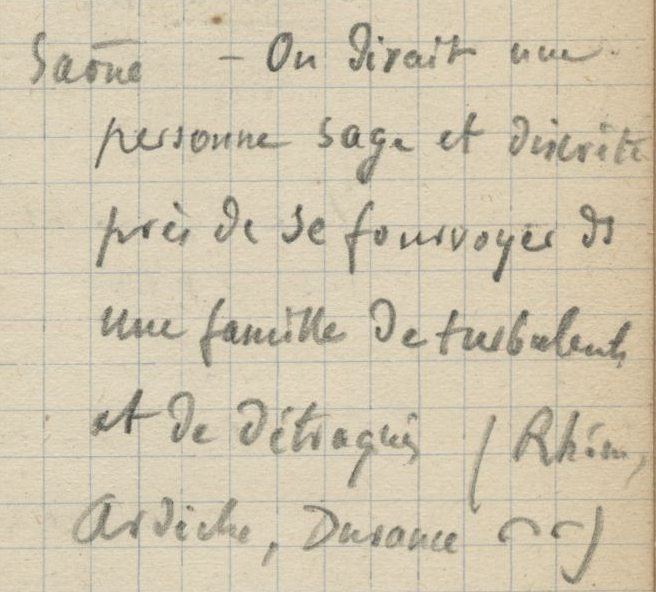 Saône - On dirait une
personne sage et discrète
près de se fourvoyer ds
une famille de turbulents
et de détraqués (Rhône,
Ardèche, Durance